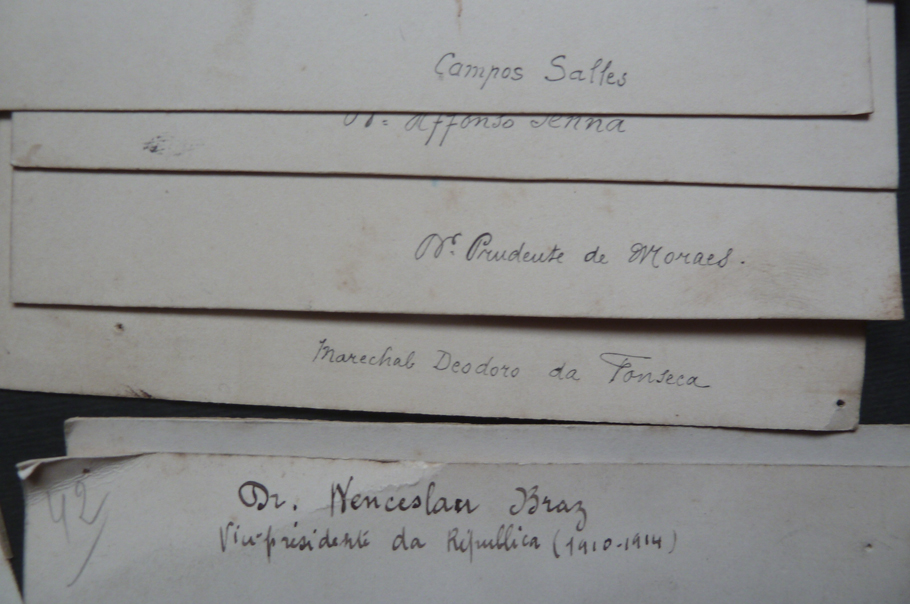 Campos Salles
Dr. Affonso Penna
Dr. Prudente de Moraes.
Marechal Deodoro da Fonseca
42
Dr. Wenceslau Braz
Vice-presidente da Republica (1910-1914)